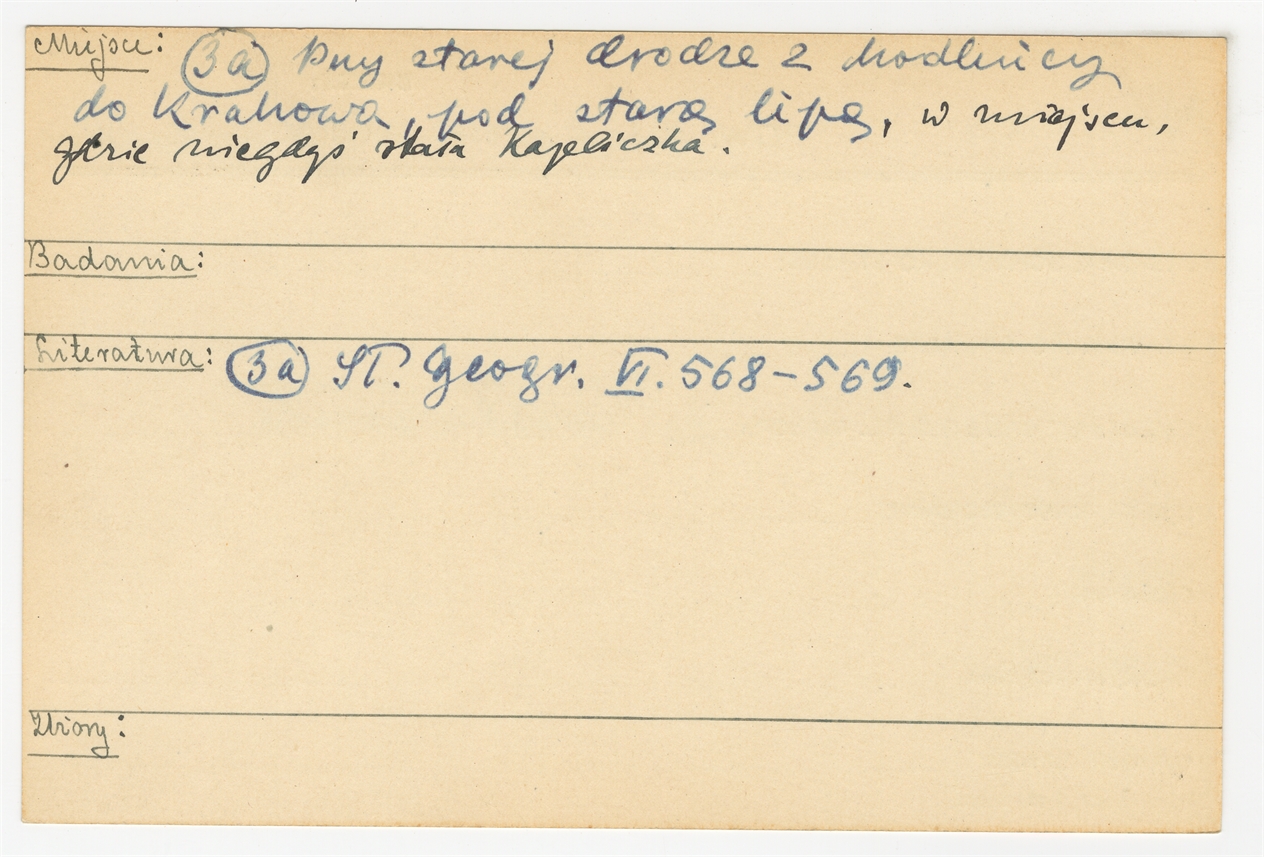 Miejsce: (3a) Przy starej drodze z Modlnicy
do Krakowa, pod starą lipą, w miejscu,
gdzie niegdyś stała Kapliczka.
Badania:
Literatura: (3a) Sł. Geogr. VI. 568-569.
Zbiory: